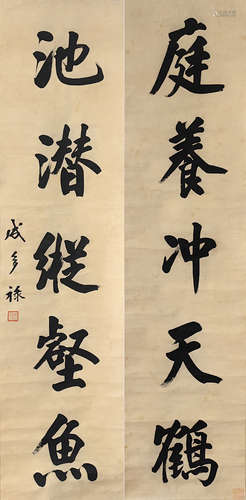 庭養冲天鶴
池潜縱壑魚
成多祿